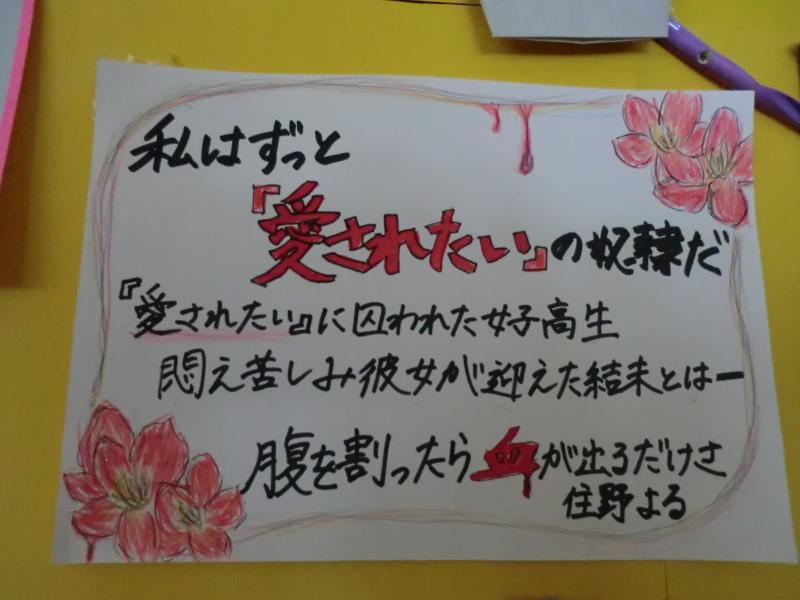 私はずっと
『愛されたい』の奴隷だ
『愛されたい』に囚われた女子高生
悶え苦しみ彼女が迎えた結末とはー
腹を割ったら血が出るだけさ
住野よる